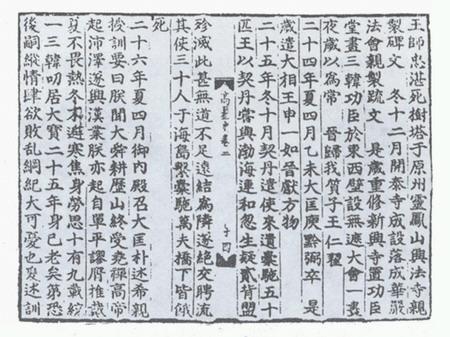 王師忠湛死樹塔于原州靈鳳山興法寺親
製碑文　冬十二月開泰寺成設落成華嚴
法會親製疏文　是歲重修新興寺置功臣
堂畫三韓功臣於東西壁設無遮大會一晝
夜歲以爲常　晉歸我質子王仁翟
二十四年夏四月乙未大匡庾黔弼卒　是
歲遣大相王申一如晉獻方物
二十五年冬十月契丹遣使來遺橐駞五十
匹王以契丹嘗與渤海連和忽生疑貳背盟
高麗史卷二　十四
殄滅此甚無道不足遠結爲隣遂絶交聘流
其使三十人于海島繫橐駞萬夫橋下皆餓
死
二十六年夏四月御內殿召大匡朴述希親
授訓要曰朕聞大舜耕歷山終受堯禪高帝
起沛澤遂興漢業朕亦起自單平謬膺推戴
夏不畏熱冬不避寒焦身勞思十有九載統
一三韓叨居大寶二十五年身已老矣第恐
後嗣縱情肆欲敗亂綱紀大可憂也爰述訓